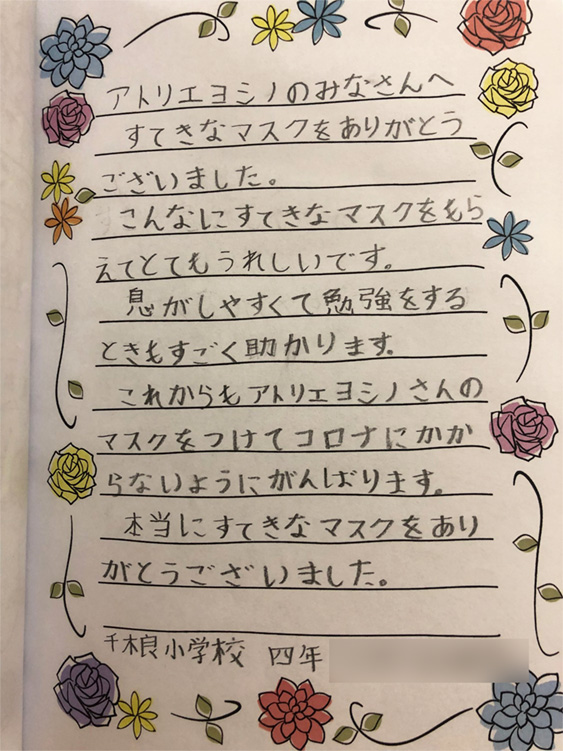 アトリエヨシノのみなさんへ
すてきなマスクをありがとう
ございました。
こんなにすてきなマスクをもら
えてとてもうれしいです。
息がしやすくて勉強をする
ときもすごく助かります。
これからもアトリエヨシノさんの
マスクをつけてコロナにかか
らないようにがんばります。
本当にすてきなマスクをあり
がとうございました。
千木良小学校 四年